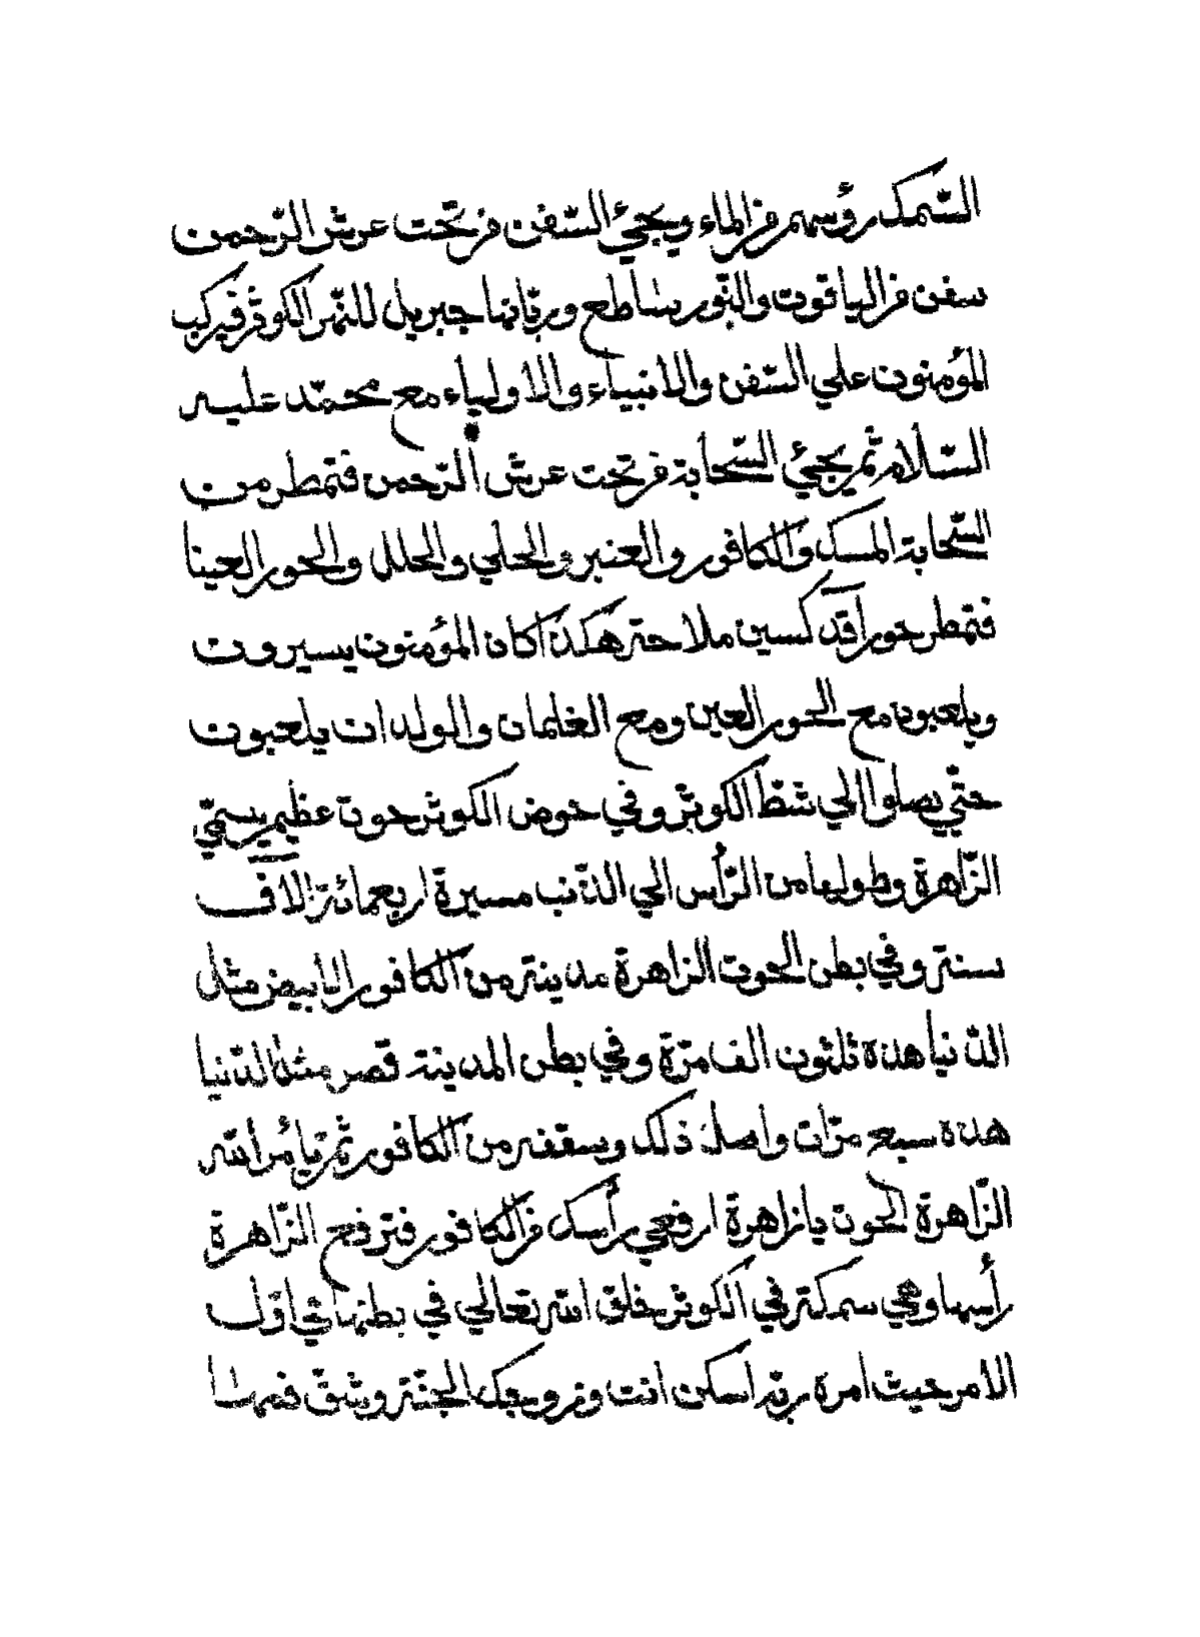 السّمك رؤسهم من الماء ويجيئ السّفن من تحت عرش الرّحمن
سفن من الياقوت والنّور ساطع وربّانها جبريل للنّهر الكوثر فيركب
المؤمنون علي السّفن والانبياء والاولياء مع محمّد عليه
السّلام ثم يجيئ السّحابة من تحت عرش الرّحمن فتمطر من
السّحابة المسك والكافور والعنبر والحلي والحلل والحور العينا
فتمطر حورا قد كسين ملاحة هكذا كان المؤمنون يسيرون
ويلعبون مع الحور العين ومع الغلمان والولدان يلعبون
حتّي يصلوا الي شطّ الكوثر وفي حوض الكوثر حوت عظيم يسمّي
الزّاهرة وطولها من الرّأس الي الذّنب مسيرة اربعمائة الاف
سنة وفي بطن الحوت الزاهرة مدينة من الكافور الأبيض مثل
الدّنيا هذه ثلثون الف مرّة وفي بطن المدينة قصر مثل الدّنيا
هذه سبع مرّات واصل ذلك وسقفه من الكافور ثم يأمر الله
الزّاهرة الحوت يا زاهرة ارفعي رأسك من الكافور فترفع الزّاهرة
رأسها وهي سمكة في الكوثر خلق الله تعالي في بطنها في اوّل
الامر حيث امره ربّه اسكن انت وزوجك الجنّة وشقّ فمها